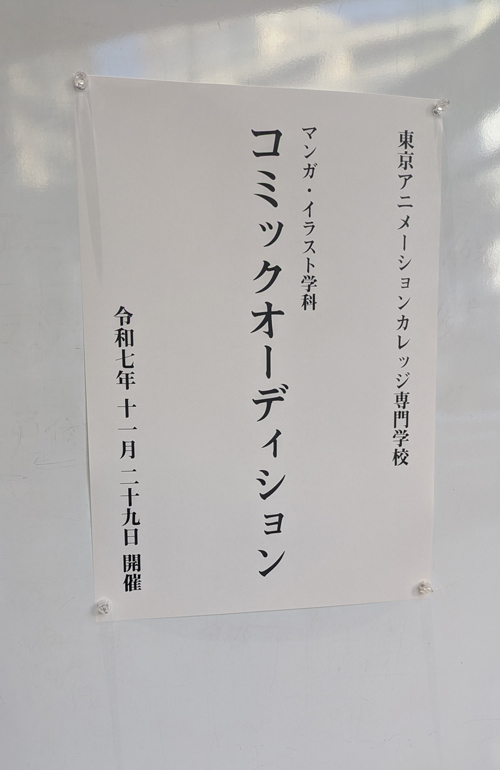 東京アニメーションカレッジ専門学校
マンガ・イラスト学科
コミックオーディション
令和七年 十一月 二十九日 開催